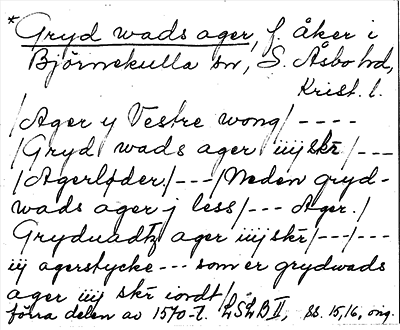 *Gryd wads ager, f. åker i
Björnekulla sn, S. Åsbo hd,
Krist. l.
/Ager y Vestre wong/----
/Gryd wads ager iiij skr/---
/Agerløder./---/Neden gryd-
wads ager j less/--- Ager./
Gryduadtz ager iiij skr/---/---
iij agerstycke --- som er grydwads
ager iiij skr iordt/.
förra delen av 1570-t. LSLB II, ss. 15, 16, orig.